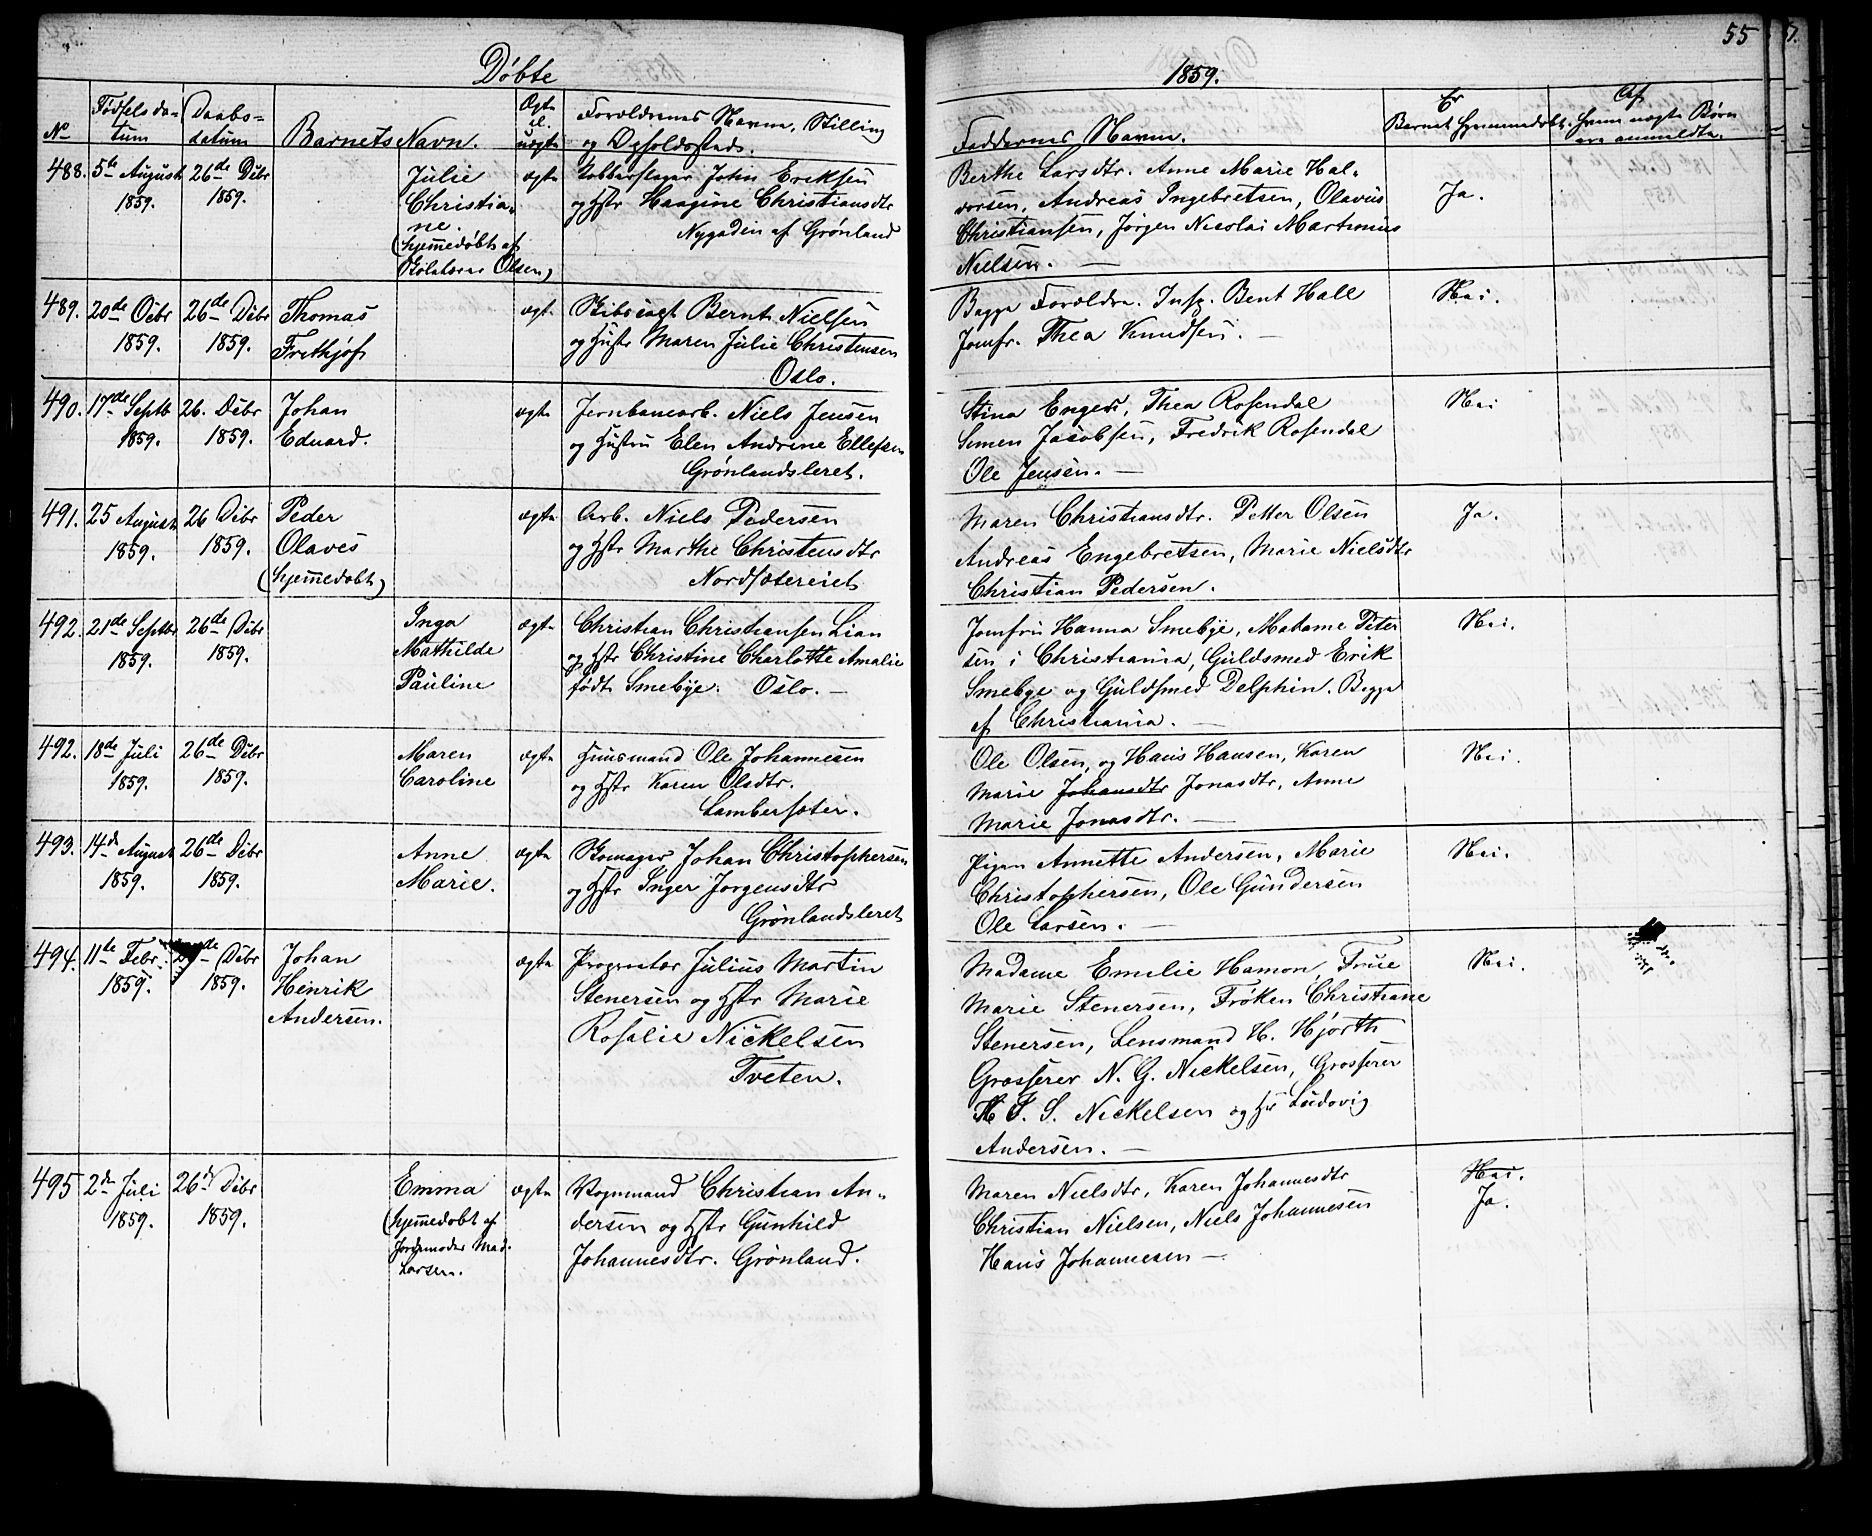 55
Døbte
1859.
No
Fødselsda-
tum
Daabs-
datum
Barnets Navn.
Ægte
el.
uægte
Forældrenes Navne, Stilling
og Opholdssted.
Faddernes Navne.
Er
Barnet hjemmedøbt.
Af
hvem uægte Børn
ere anmeldte.
488. 5te August 26de Dcbr Julie ægte Kobberslager John Eriksen
1859. 1859. Christia-
ne. og Hstr Haagine Christiansdtr
(hjemmedøbt af Nygaden af Grønland
Olsen)
Berthe Larsdtr. Anne Marie Hal-
vorsen, Andreas Ingebretsen, Olavus Ja.
Christiansen, Jørgen Nicolai Martinius
Nielsen. —
489. 20de Octbr 26de Dcbr Thomas ægte Skibs Bernt Nielsen
1859. 1859. Frithjof og Hustr Maren Julie Christensen
Oslo.
Begge Forældre. Insp. Bent Hall Nei.
Jomfr. Thea Knudsen. —
490. 17de Septb 26. Dcbr Johan ægte Jernbanearb. Niels Jensen
1859. 1859. Eduard. og Hustru Elen Andrine Ellefsen
Grønlandsleret.
Stina Engen, Thea Rosendal Nei
Simen Jacobsen, Fredrik Rosendal
Ole Jensen. —
491. 25 August 26 Dcbr Peder ægte Arb. Niels Pedersen
1859. 1859. Olaves og Hstr Marthe Christensdtr
(hjemmedøbt) Nordsætereiet
Maren Christiansdtr. Petter Olsen Ja.
Andreas Engebretsen, Marie Nielsdtr
Christian Pedersen.
492. 21de Septbr 26de Dcbr Inga ægte Christian Christiansen Lian
1859. 1859. Mathilde og Hstr Christine Charlotte Amalie
Pauline født Smebye. Oslo. —
Jomfru Hanna Smebye, Madame Peter Nei.
sen i Christiania, Guldsmed Erik
Smebye og Guldsmed Delphin. Begge
af Christiania. —
492. 18de Juli 26de Dcbr Maren ægte Huusmand Ole Johannesen
1859. 1859. Caroline og Hstr Karen Olsdtr.
Lambersæter.
Ole Olsen, og Hans Hansen, Karen Nei.
Marie Johansdtr Jonasdtr, Anne
Marie Jonasdtr. —
493. 14de August 26de Dcbr Anne ægte Skomager Johan Christophersen
1859. 1859. Marie. og Hstr Inger Jørgensdtr
Grønlandsleret
Pigen Annette Andersen, Marie Nei.
Christophersen, Ole Gundersen
Ole Larsen. —
494. 11te Febr. de Dcbr Johan ægte Procurator Julius Martin
1859. 1859. Henrik Stenersen og Hstr Marie
Andersen. Rosalie Nickelsen
Tveten.
Madame Emelie Hamon, Frue Nei.
Marie Stenersen, Frøken Christiane
Stenersen, Lensmand H. Hjorth
Grosserer N. G. Nickelsen, Grosserer
S. Nickelsen og Hr Ludovig
Andersen. —
495 2den Juli 26de Dcbr Emma ægte Vognmand Christian An-
1859. 1859. (hjemmedøbt af dersen og Hstr Gunhild
Jordemoder Mad. Johannesdtr. Grønland.
Larsen.
Maren Nielsdtr, Karen Johannesdtr Nei.
Christian Nielsen, Niels Johannesen Ja.
Hans Johannesen —